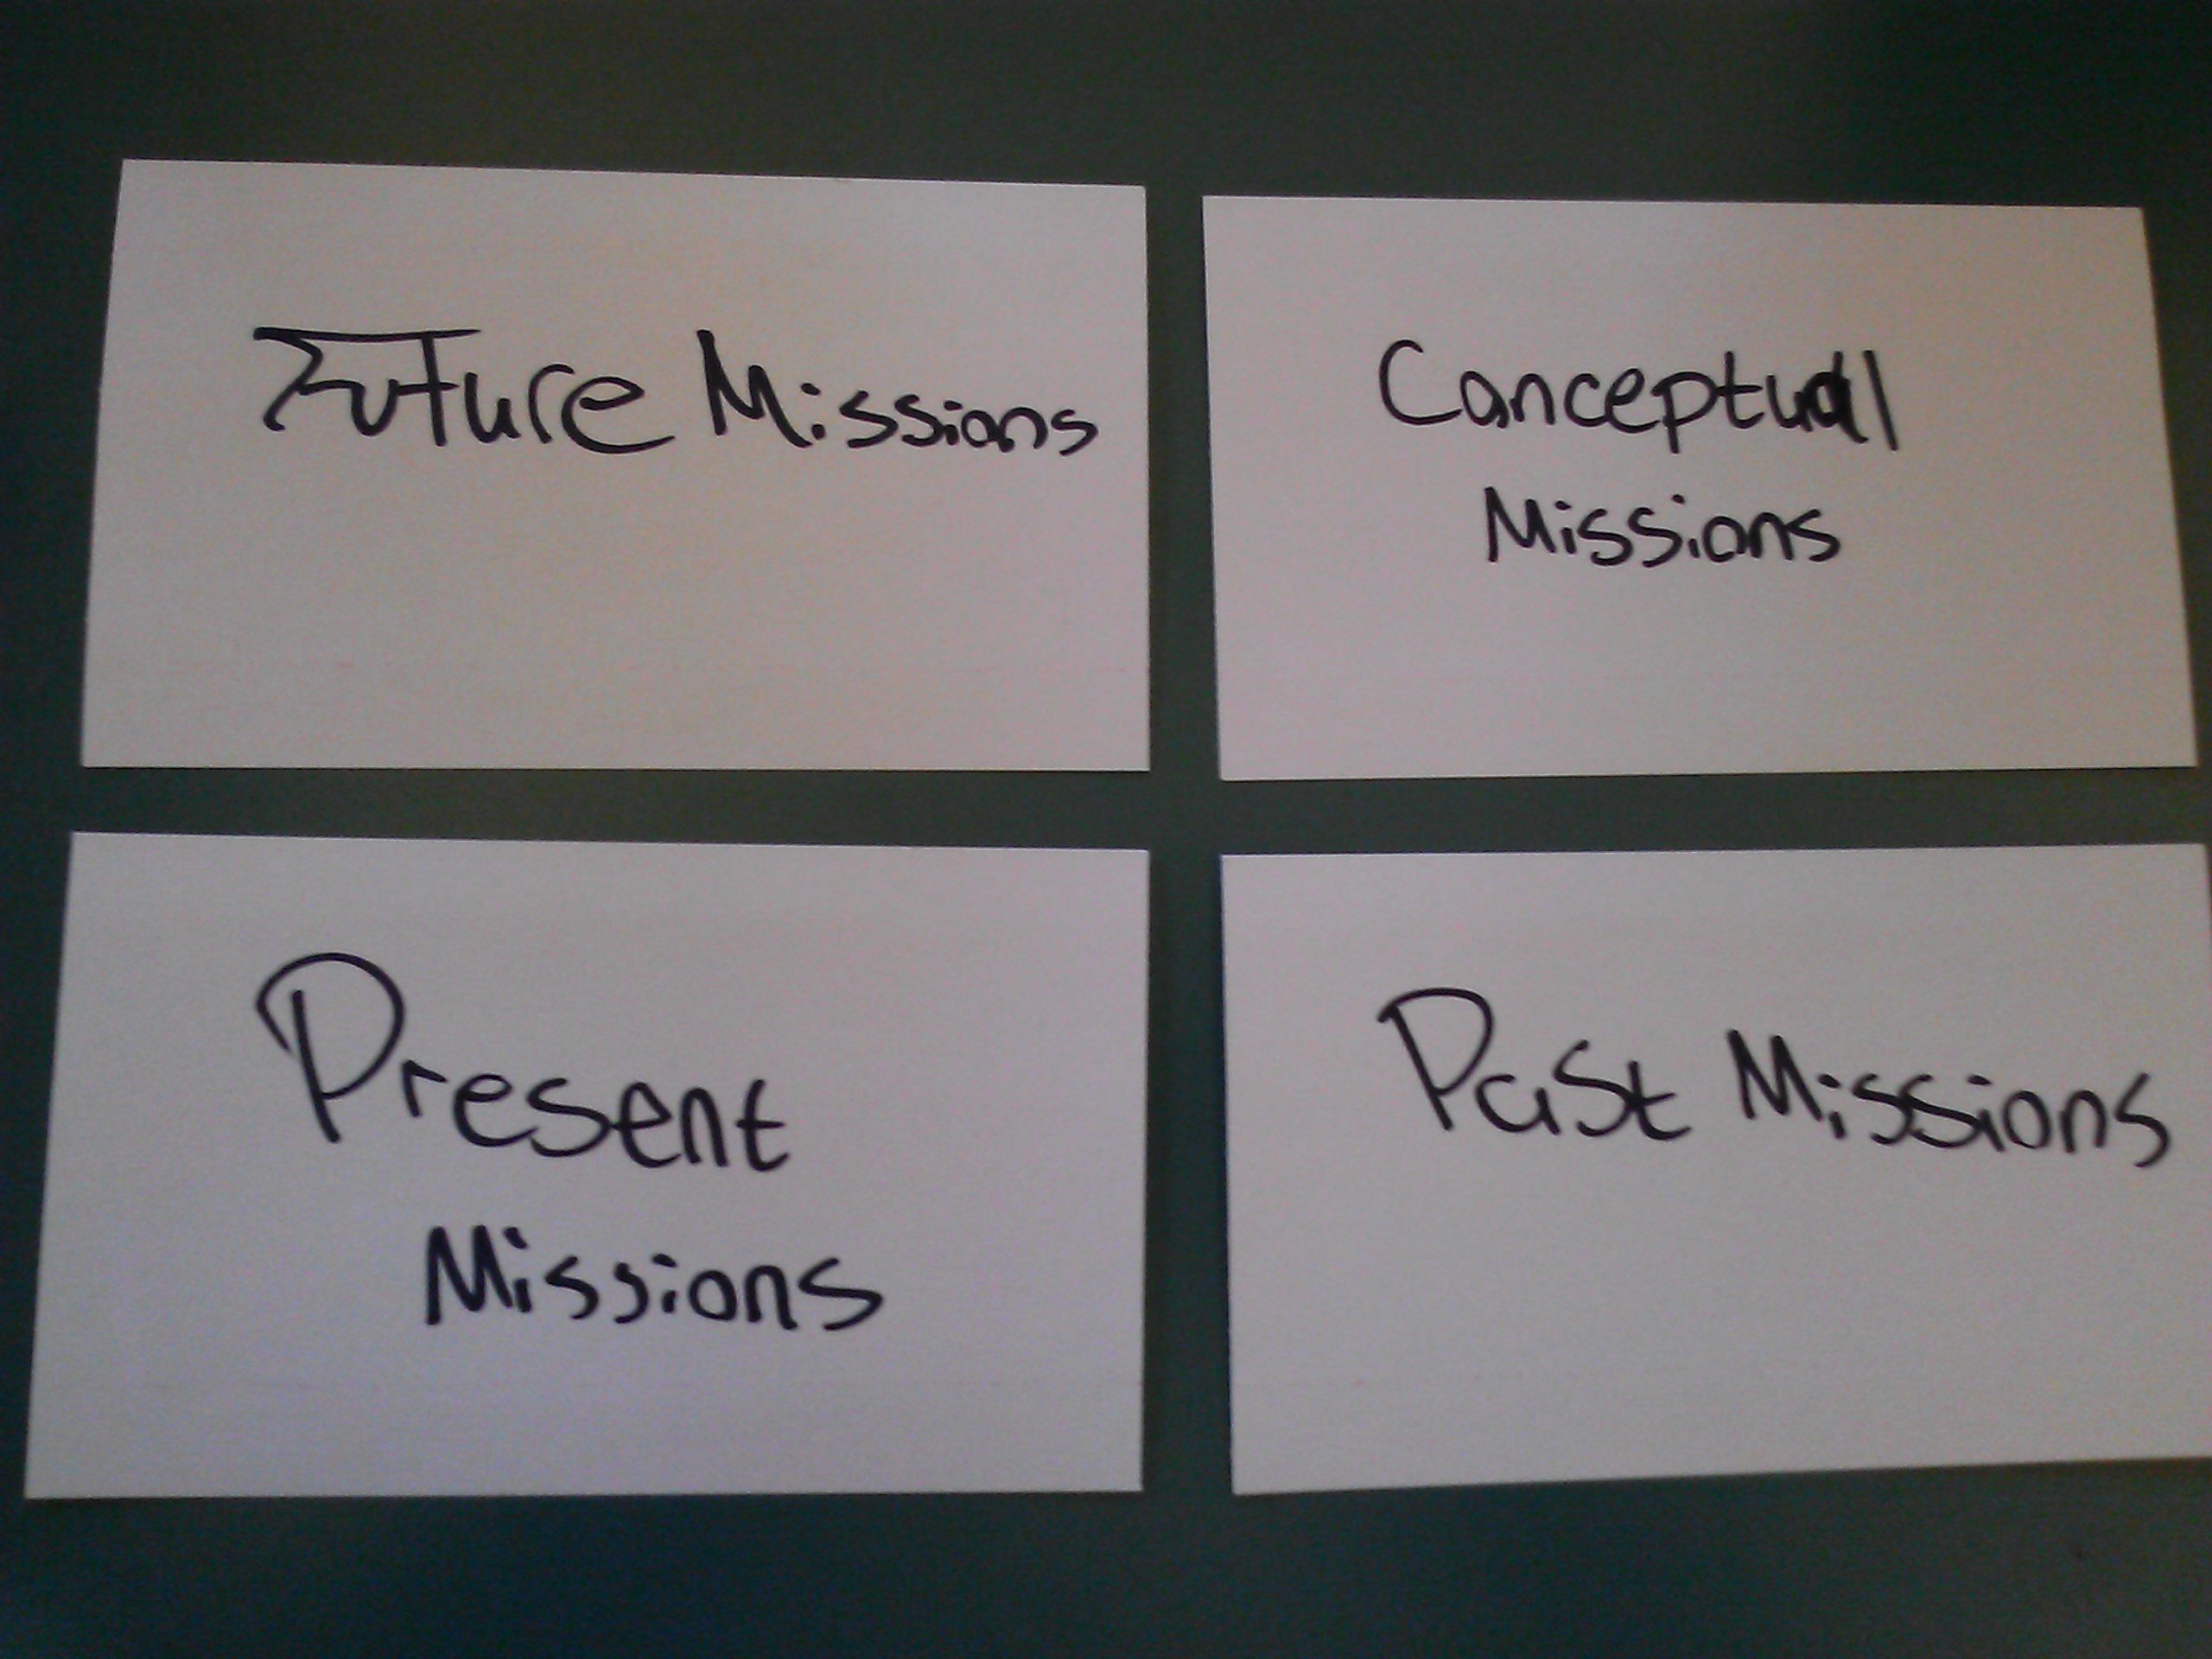 Future Missions
Conceptual
Missions
Present
Missions
Past Missions